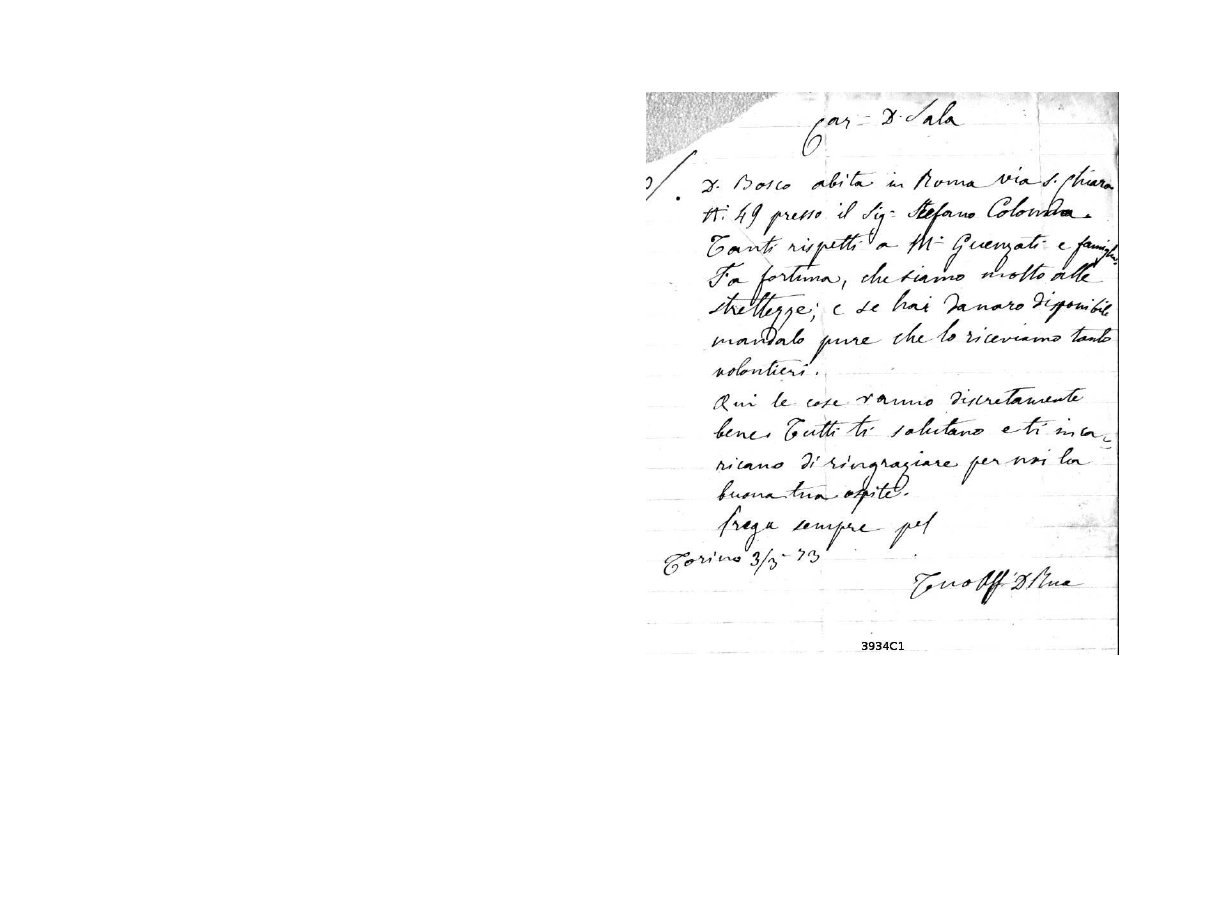 Car= D. Sala
D. Bosco abita in Roma via S. Chiara
N. 49 presso il Sig= Stefano Colomba.
Tanti rispetti a Mr Guenzati e famiglia.
Fa fortuna, che siamo molto alle
strettezze; e se hai danaro disponibile
mandalo pure che lo riceviamo tanto
volontieri.
Qui le cose vanno discretamente
bene. Tutti ti salutano e ti inca=
ricano di ringraziare per noi la
buona tua ospite.
Prega sempre pel
Torino 3/3-73
Tuo Aff. D Rua
3934C1